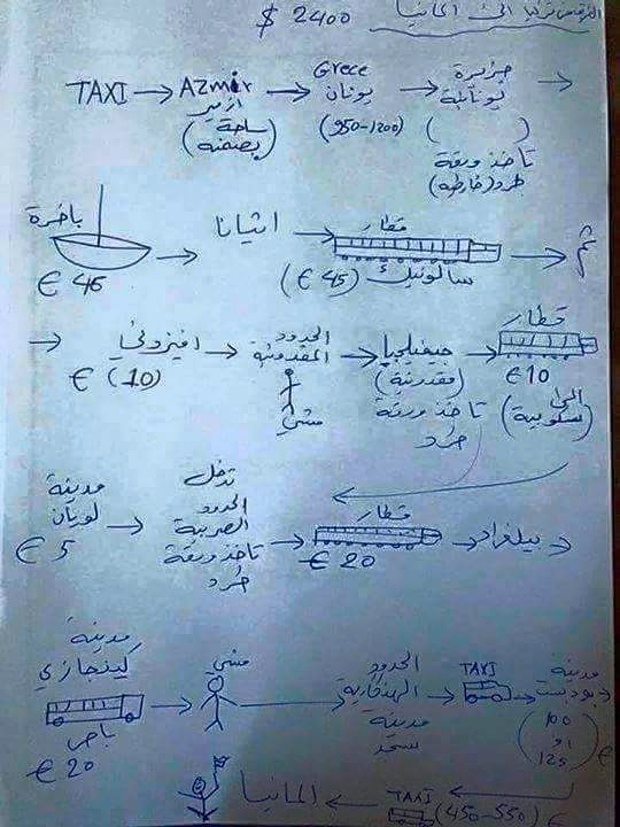 الطريق من تركيا الى المانيا 2400 $
TAXI → AZmir → Grece → جزيرة →
ازمير يونان يونانية
(ساحة بصمنه) (950-1200) ( )
تاخذ ورقة
طرد (خارطه)
باخرة → اثيانا → قطار → ثم
€ 46 (€ 45) سالونيك
→ افيزوني → الحدود المقدونية → جيفيليجيا → قطار
€ (10) مشي (مقدونية) €10
تاخذ ورقة الى (سكوبية)
طرد
مدينة لوريان → تدخل الحدود الصربية → قطار → بيلغراد
€ 5 تاخذ ورقة € 20
طرد
مدينة كينجازي → مشي → الحدود الهنغارية → TAXI → مدينة بودبست
باص مدينة (100 او 125) €
€ 20 سجد
المانيا ← TAXI (450-550) € ←